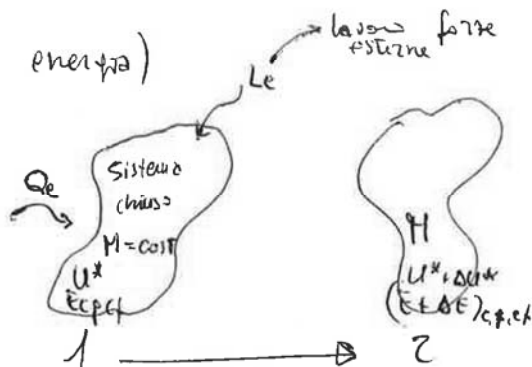 energia)
lavoro forze
esterne
Le
Qe
Sistema
chiuso
M = cost
U*
Ec,p,ef
M
U* + ΔU*
(E + ΔE)c,p,ef
1
2